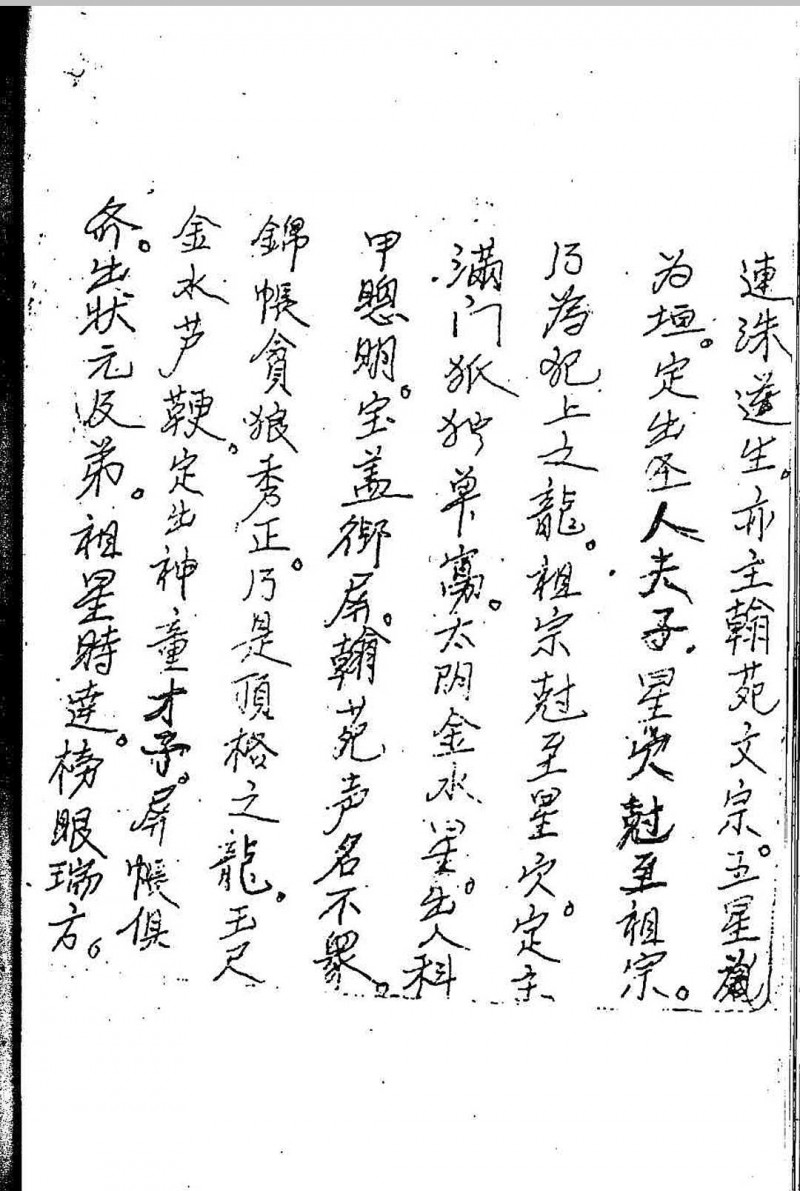 連洙遂生。亦主翰苑文宗。五星
为垣。定出圣人夫子。星穴尅至祖宗。
乃為犯上之龍。祖宗尅至星穴。定主
滿门孤独单寡。太阴金水星。出人科
甲聰明。宝盖御屏。翰苑声名不衆。
錦帳貪狼秀正。乃是頂格之龍。玉尺
金水芦鞭。定出神童才子。屏帳俱
齐。出状元及弟。祖星時達。榜眼瑞方。